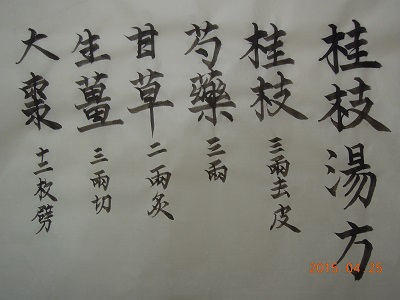 桂枝湯方
桂枝 三兩去皮
芍藥 三兩
甘草 二兩炙
生薑 三兩切
大棗 十二枚劈
2015.04.25